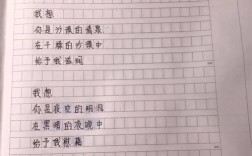 我想
你是沙漠的甘泉
在干燥的沙漠中
给予我滋润
我想
你是夜空的明月
在黑暗的夜晚中
给予我慰藉